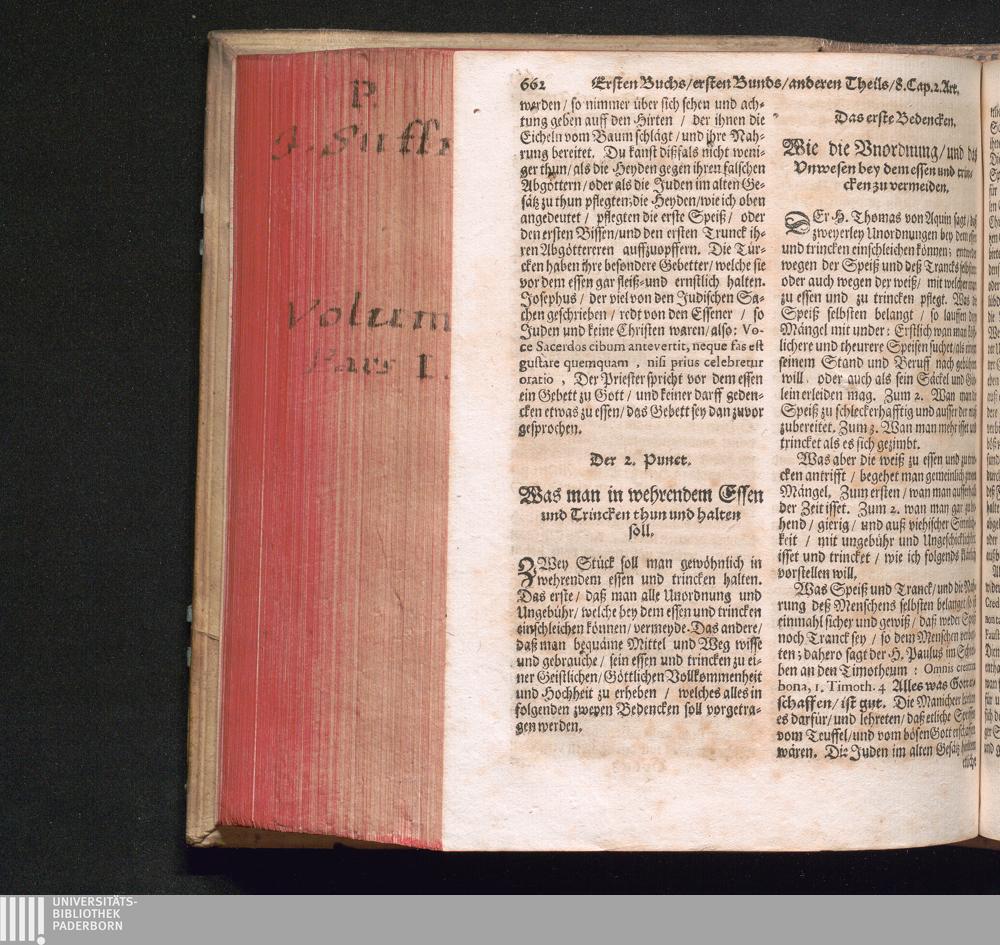 P.
J. Suffr
Volum
Pars I.
662 Ersten Buchs/ersten Bunds/anderen Theils/8.Cap.2.Art.
werden/ so nimmer über sich sehen und ach-
tung geben auff den Hirten / der ihnen die
Eicheln vom Baum schlägt / und ihre Nah-
rung bereitet. Du kanst dißfals nicht weni-
ger thun/ als die Heyden gegen ihren falschen
Abgöttern/ oder als die Juden im alten Ge-
sätz zu thun pflegten; die Heyden/wie ich oben
angedeutet / pflegten die erste Speiß / oder
den ersten Bissen/und den ersten Trunck ih-
ren Abgöttereren auffzuopffern. Die Tür-
cken haben ihre besondere Gebetter/ welche sie
vor dem essen gar fleiß-und ernstlich halten.
Josephus / der viel von den Judischen Sa-
chen geschrieben / redt von den Essener / so
Juden und keine Christen waren/ also: Vo-
ce Sacerdos cibum antevertit, neque fas est
gustare quemquam , nisi prius celebretur
oratio , Der Priester spricht vor dem essen
ein Gebett zu Gott / und keiner darff geden-
cken etwas zu essen/ das Gebett sey dan zuvor
gesprochen.
Der 2. Punct.
Was man in wehrendem Essen
und Trincken thun und halten
soll.
ZWey Stück soll man gewöhnlich in
wehrendem essen und trincken halten.
Das erste/ daß man alle Unordnung und
Ungebühr/ welche bey dem essen und trincken
einschleichen können/ vermeyde. Das andere/
daß man bequäme Mittel und Weg wisse
und gebrauche/ sein essen und trincken zu ei-
ner Geistlichen/ Göttlichen Vollkommenheit
und Hochheit zu erheben / welches alles in
folgenden zweyen Bedencken soll vorgetra-
gen werden.
Das erste Bedencken.
Wie die Vnordnung/ und das
Vnwesen bey dem essen und trin-
cken zu vermeiden.
DEr H. Thomas von Aquin sagt/ daß
zweyerley Unordnungen bey dem essen
und trincken einschleichen können; entweder
wegen der Speiß und deß Trancks selbsten
oder auch wegen der weiß/ mit welcher man
zu essen und zu trincken pflegt. Was die
Speiß selbsten belangt / so lauffen drey
Mängel mit under: Erstlich wan man köst-
lichere und theurere Speisen suchet/als einem
seinem Stand und Beruff nach gebühren
will, oder auch als sein Säckel und
lein erleiden mag. Zum 2. Wan man die
Speiß zu schleckerhafftig und ausser der maß
zubereitet. Zum 3. Wan man mehr isset und
trincket als es sich gezimbt.
Was aber die weiß zu essen und zu trin-
cken antrifft / begehet man gemeinlich zween
Mängel, Zum ersten / wan man ausserhalb
der Zeit isset. Zum 2. wan man gar
hend/ gierig / und auß viehischer Sinnlich-
keit / mit ungebühr und Ungeschicklichkeit
isset und trincket / wie ich folgends klärlich
vorstellen will.
Was Speiß und Tranck/ und die Nah-
rung deß Menschens selbsten belanget/ ist
einmahl sicher und gewiß/ daß weder Speiß
noch Tranck sey / so dem Menschen verbot-
ten; dahero sagt der H. Paulus im Schrei-
ben an den Timotheum : Omnis creatura
bona, 1. Timoth. 4 Alles was Gott er-
schaffen/ ist gut. Die Manicheer
es darfür/ und lehreten/ daß etliche Speisen
vom Teuffel/und vom bösen Gott erschaffen
wären. Die Juden im alten Gesätz
etliche
UNIVERSITÄTS-
BIBLIOTHEK
PADERBORN